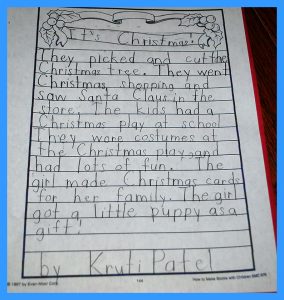 It's Christmas!
They picked and cut the
Christmas tree. They went
Christmas shopping and
saw Santa Clays in the
store. The kids had a
Christmas play at school
They wore costumes at
the Christmas play and
had lots of fun. The
girl made Christmas cards
for her family. The girl
got a little puppy as a
gift!
by Kruti Patel
© 1997 by Evan-Moor Corp.
144
How to Make Books with Children EMC 576